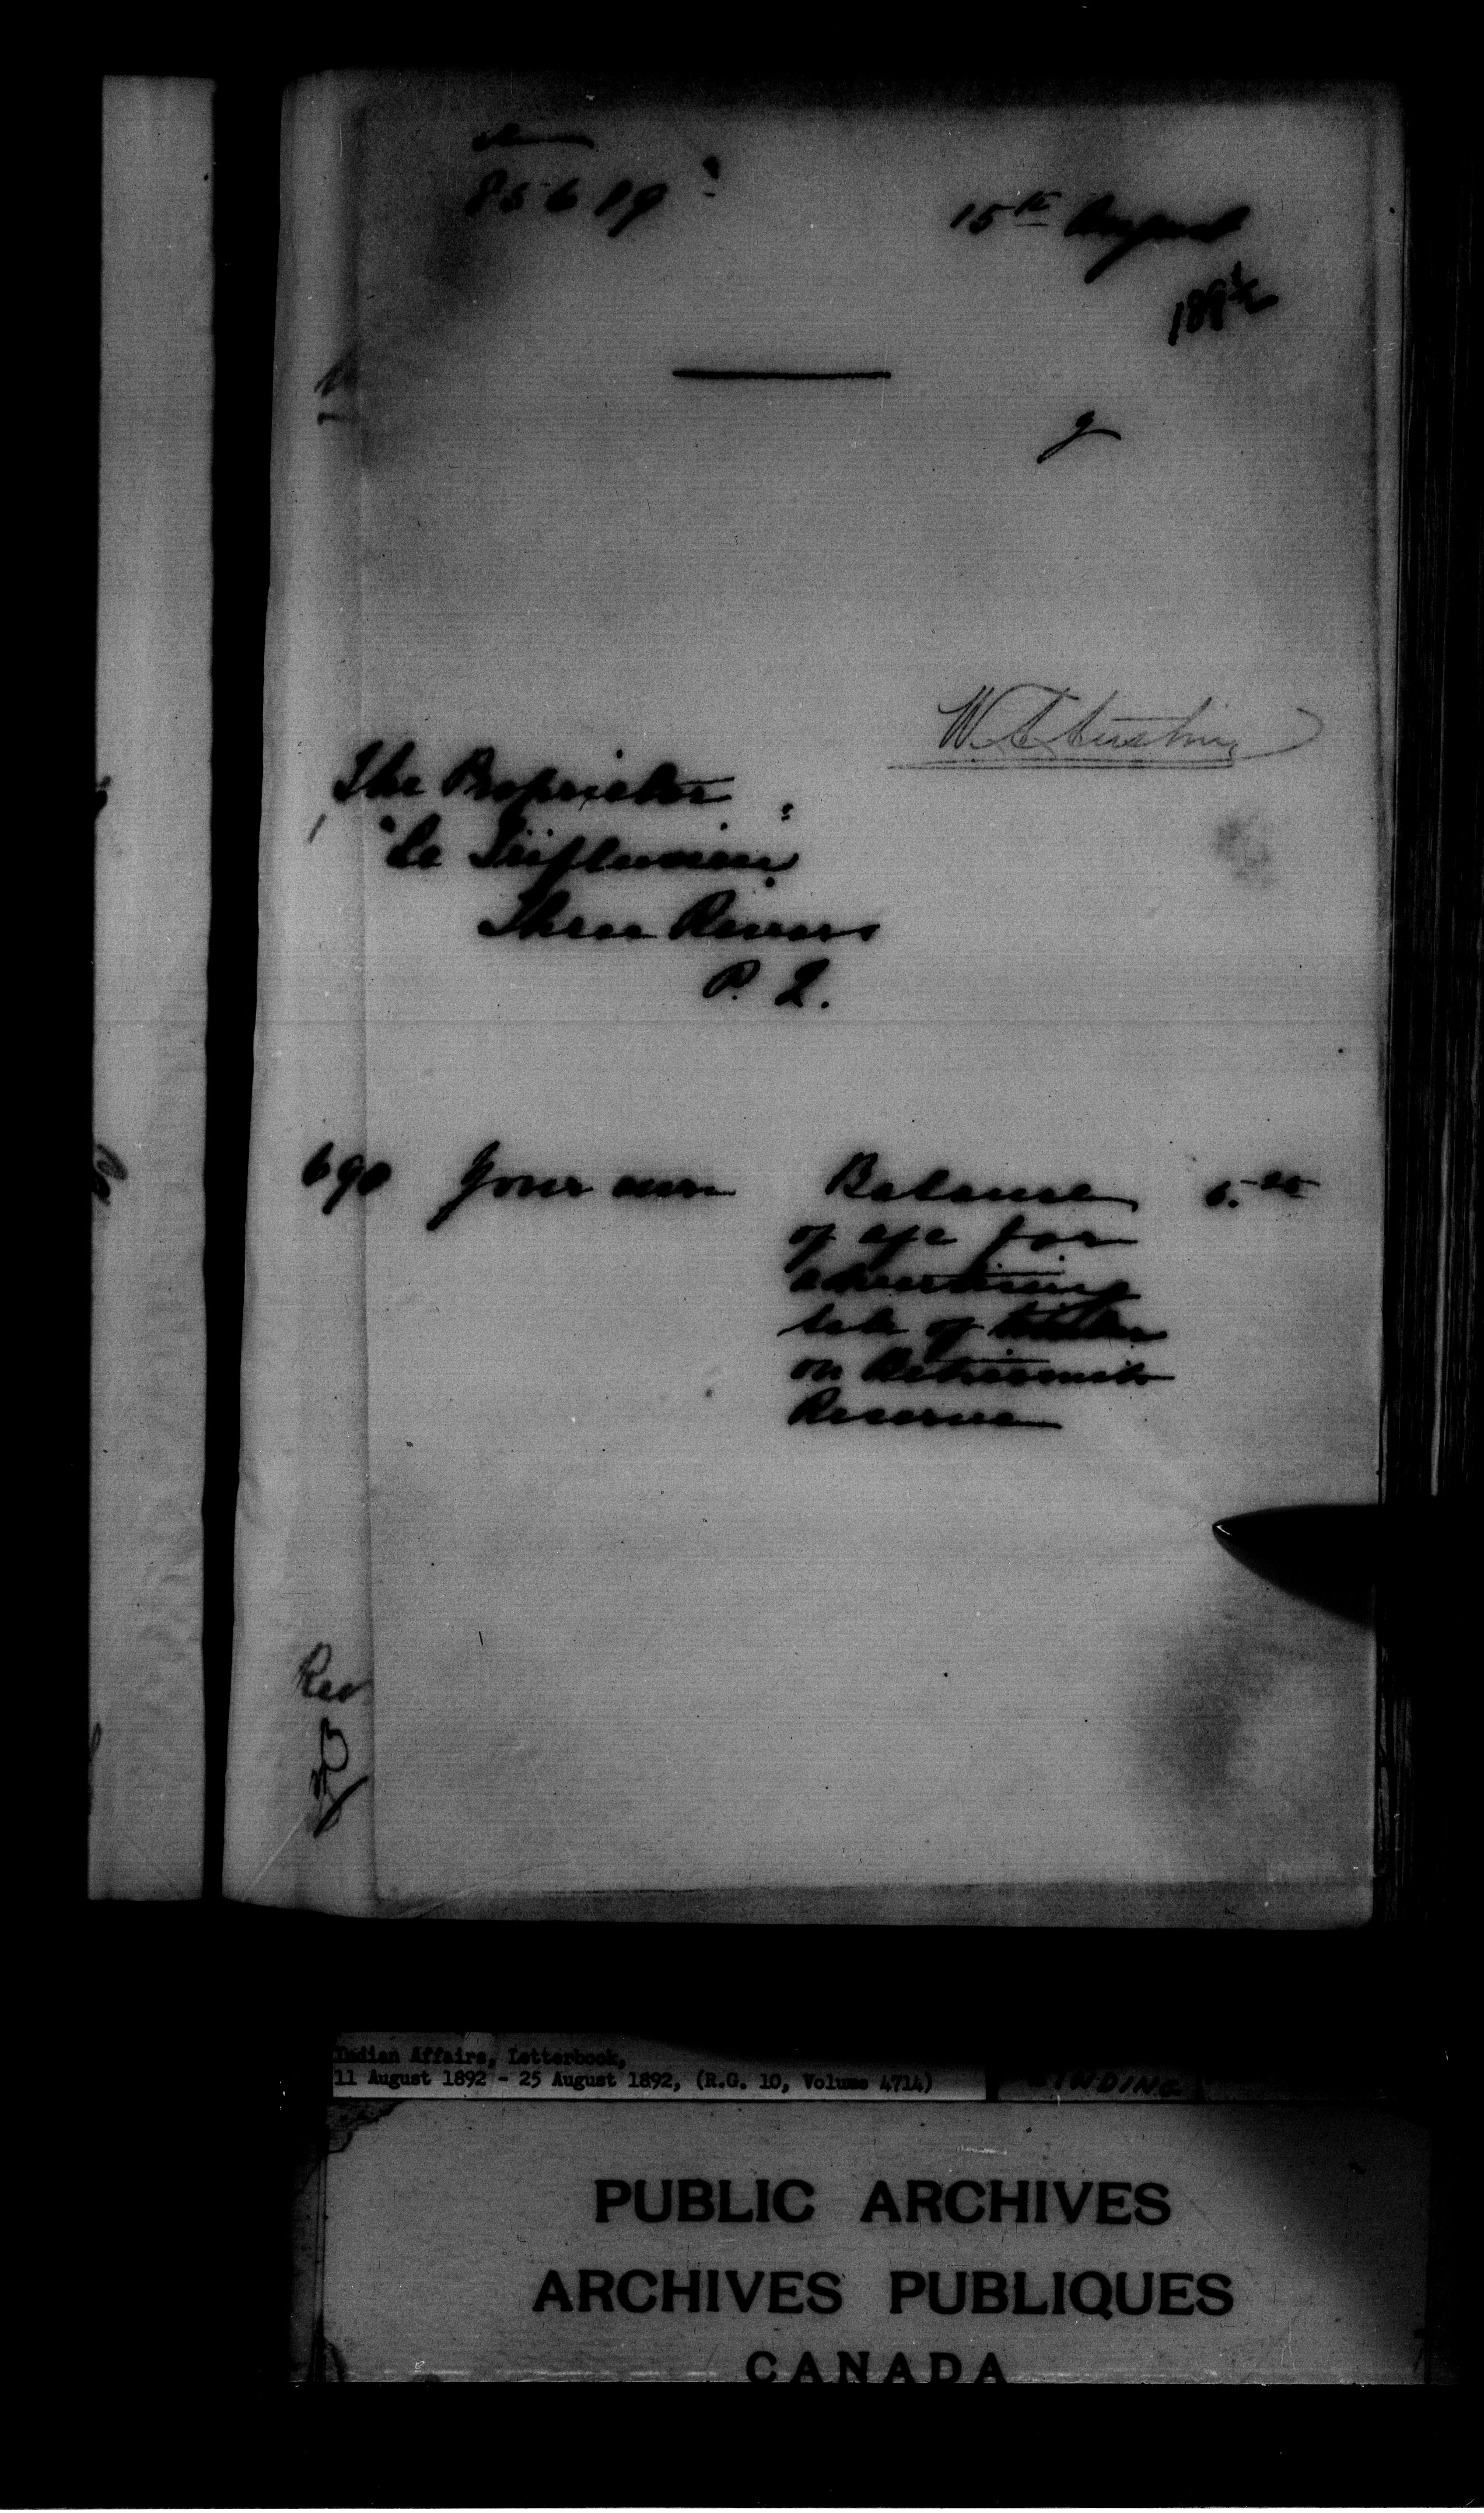 85619
15th August
1892
W. A. Austin
The Proprietor
"Le Trifluvien"
Three Rivers
P. Q.
690 Your own Balance 5.20
of a/c for
advertising
sale of timber
on Betsiamits
Reserve
Rev
Indian Affairs, Letterbook,
11 August 1892 - 25 August 1892, (R.G. 10, Volume 4714)
BINDING
PUBLIC ARCHIVES
ARCHIVES PUBLIQUES
CANADA